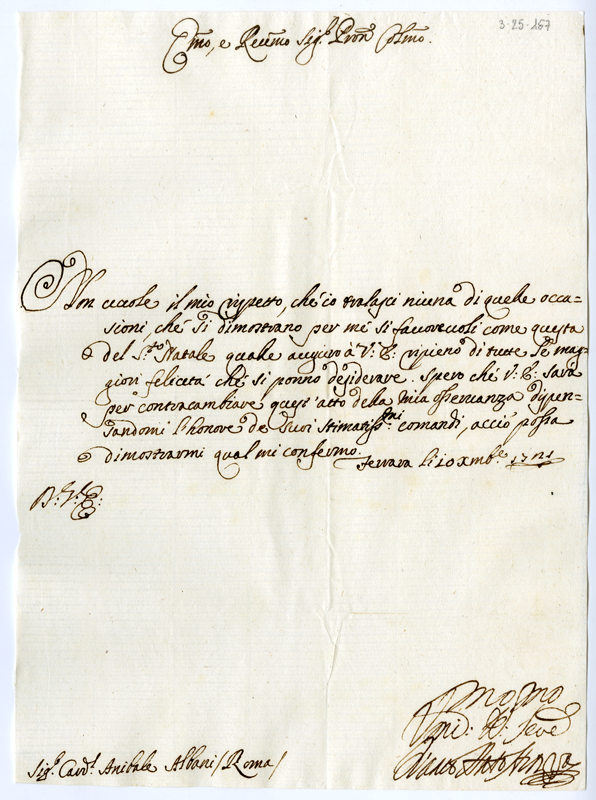 3-25-167
Emo, e Revmo Sigr. Pron Colmo.
Non vuole il mio rispetto, che io tralasci niuna di quelle occa=
sioni, che si dimostrano per me si favorevoli come questa
del S.to Natale quale auguro à V: E: ripieno di tutte le mag
giori felicità che si ponno desiderare. Spero che V: E: sarà
per contracambiare quest'atto della mia osservanza dispen=
sandomi l'honore de suoi stimatiss.mi comandi, acciò possa
dimostrarmi qual mi confermo.
Ferrara li 10 Xmbe.
D: V: E:
Sigr. Card.l Anibale Albani / Roma /